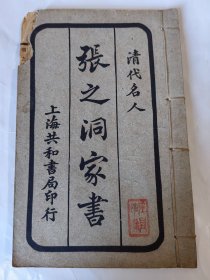 清代名人
張之洞家書
上海共和書局印行